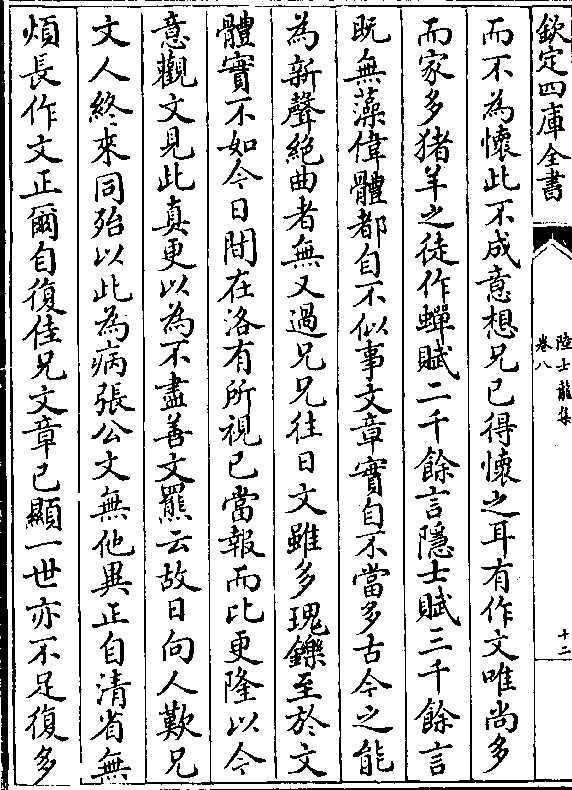 欽定四庫全書
陸士龍集
卷八
十二
而不為懷此不成意想兄已得懷之耳有作文唯尚多
而家多猪羊之徒作蟬賦二千餘言隱士賦三千餘言
既無藻偉體都自不似事文章實自不當多古今之能
為新聲絕曲者無又過兄兄往日文雖多瑰鑠至於文
體實不如今日間在洛有所視已當報而比更隆以今
意觀文見此真更以為不盡善文羆云故日向人歎兄
文人終來同殆以此為病張公文無他異正自清省無
煩長作文正爾自復佳兄文章已顯一世亦不足復多